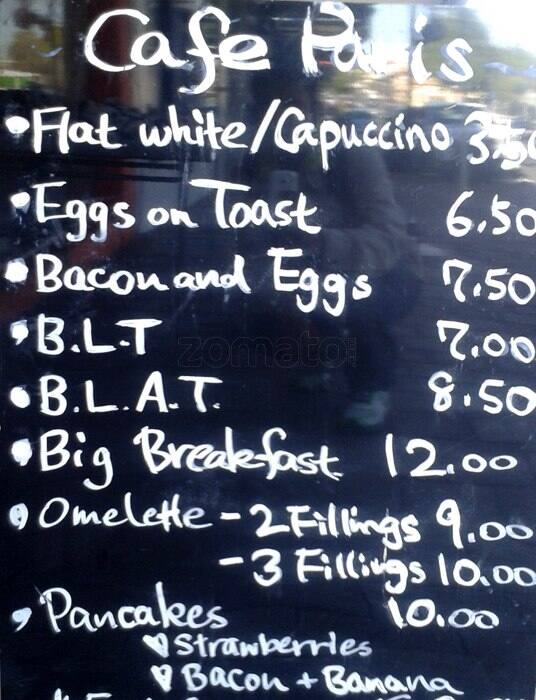 Cafe Paris
• Flat white/Capuccino 3.50
• Eggs on Toast 6.50
• Bacon and Eggs 7.50
• B.L.T 7.00
• B.L.A.T. 8.50
• Big Breakfast 12.00
• Omelette - 2 Fillings 9.00
- 3 Fillings 10.00
• Pancakes 10.00
♥ Strawberries
♥ Bacon + Banana
zomato